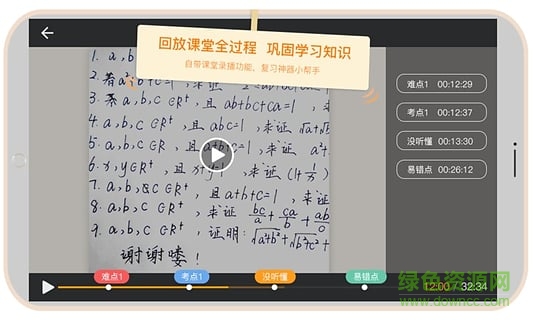 回放课堂全过程 巩固学习知识
自带课堂录播功能、复习神器小帮手
1. a, b
2. 若a²+b+c=1
3. 若a,b,c∈R⁺,且ab+bc+ca=1,求
4. a,b,c∈R⁺,且abc=1,求证√a+√b
5. a,b,c∈R⁺,且a+b+c=1,求证a²+
6. x,y∈R⁺,且x+y=1,求证(1+1/x)
7. a,b,c∈R⁺,且a+b+c=1,求证
8. a,b,c∈R⁺,求证bc/a+ca/b+ab/
9. a,b,c∈R⁺,证明:√a²+b²+√b²+c²+
谢谢喽!
难点1 00:12:29
考点1 00:12:37
没听懂 00:13:30
易错点 00:26:12
难点1
考点1
没听懂
易错点
12:00
32:34
绿色资源网
www.downcc.com